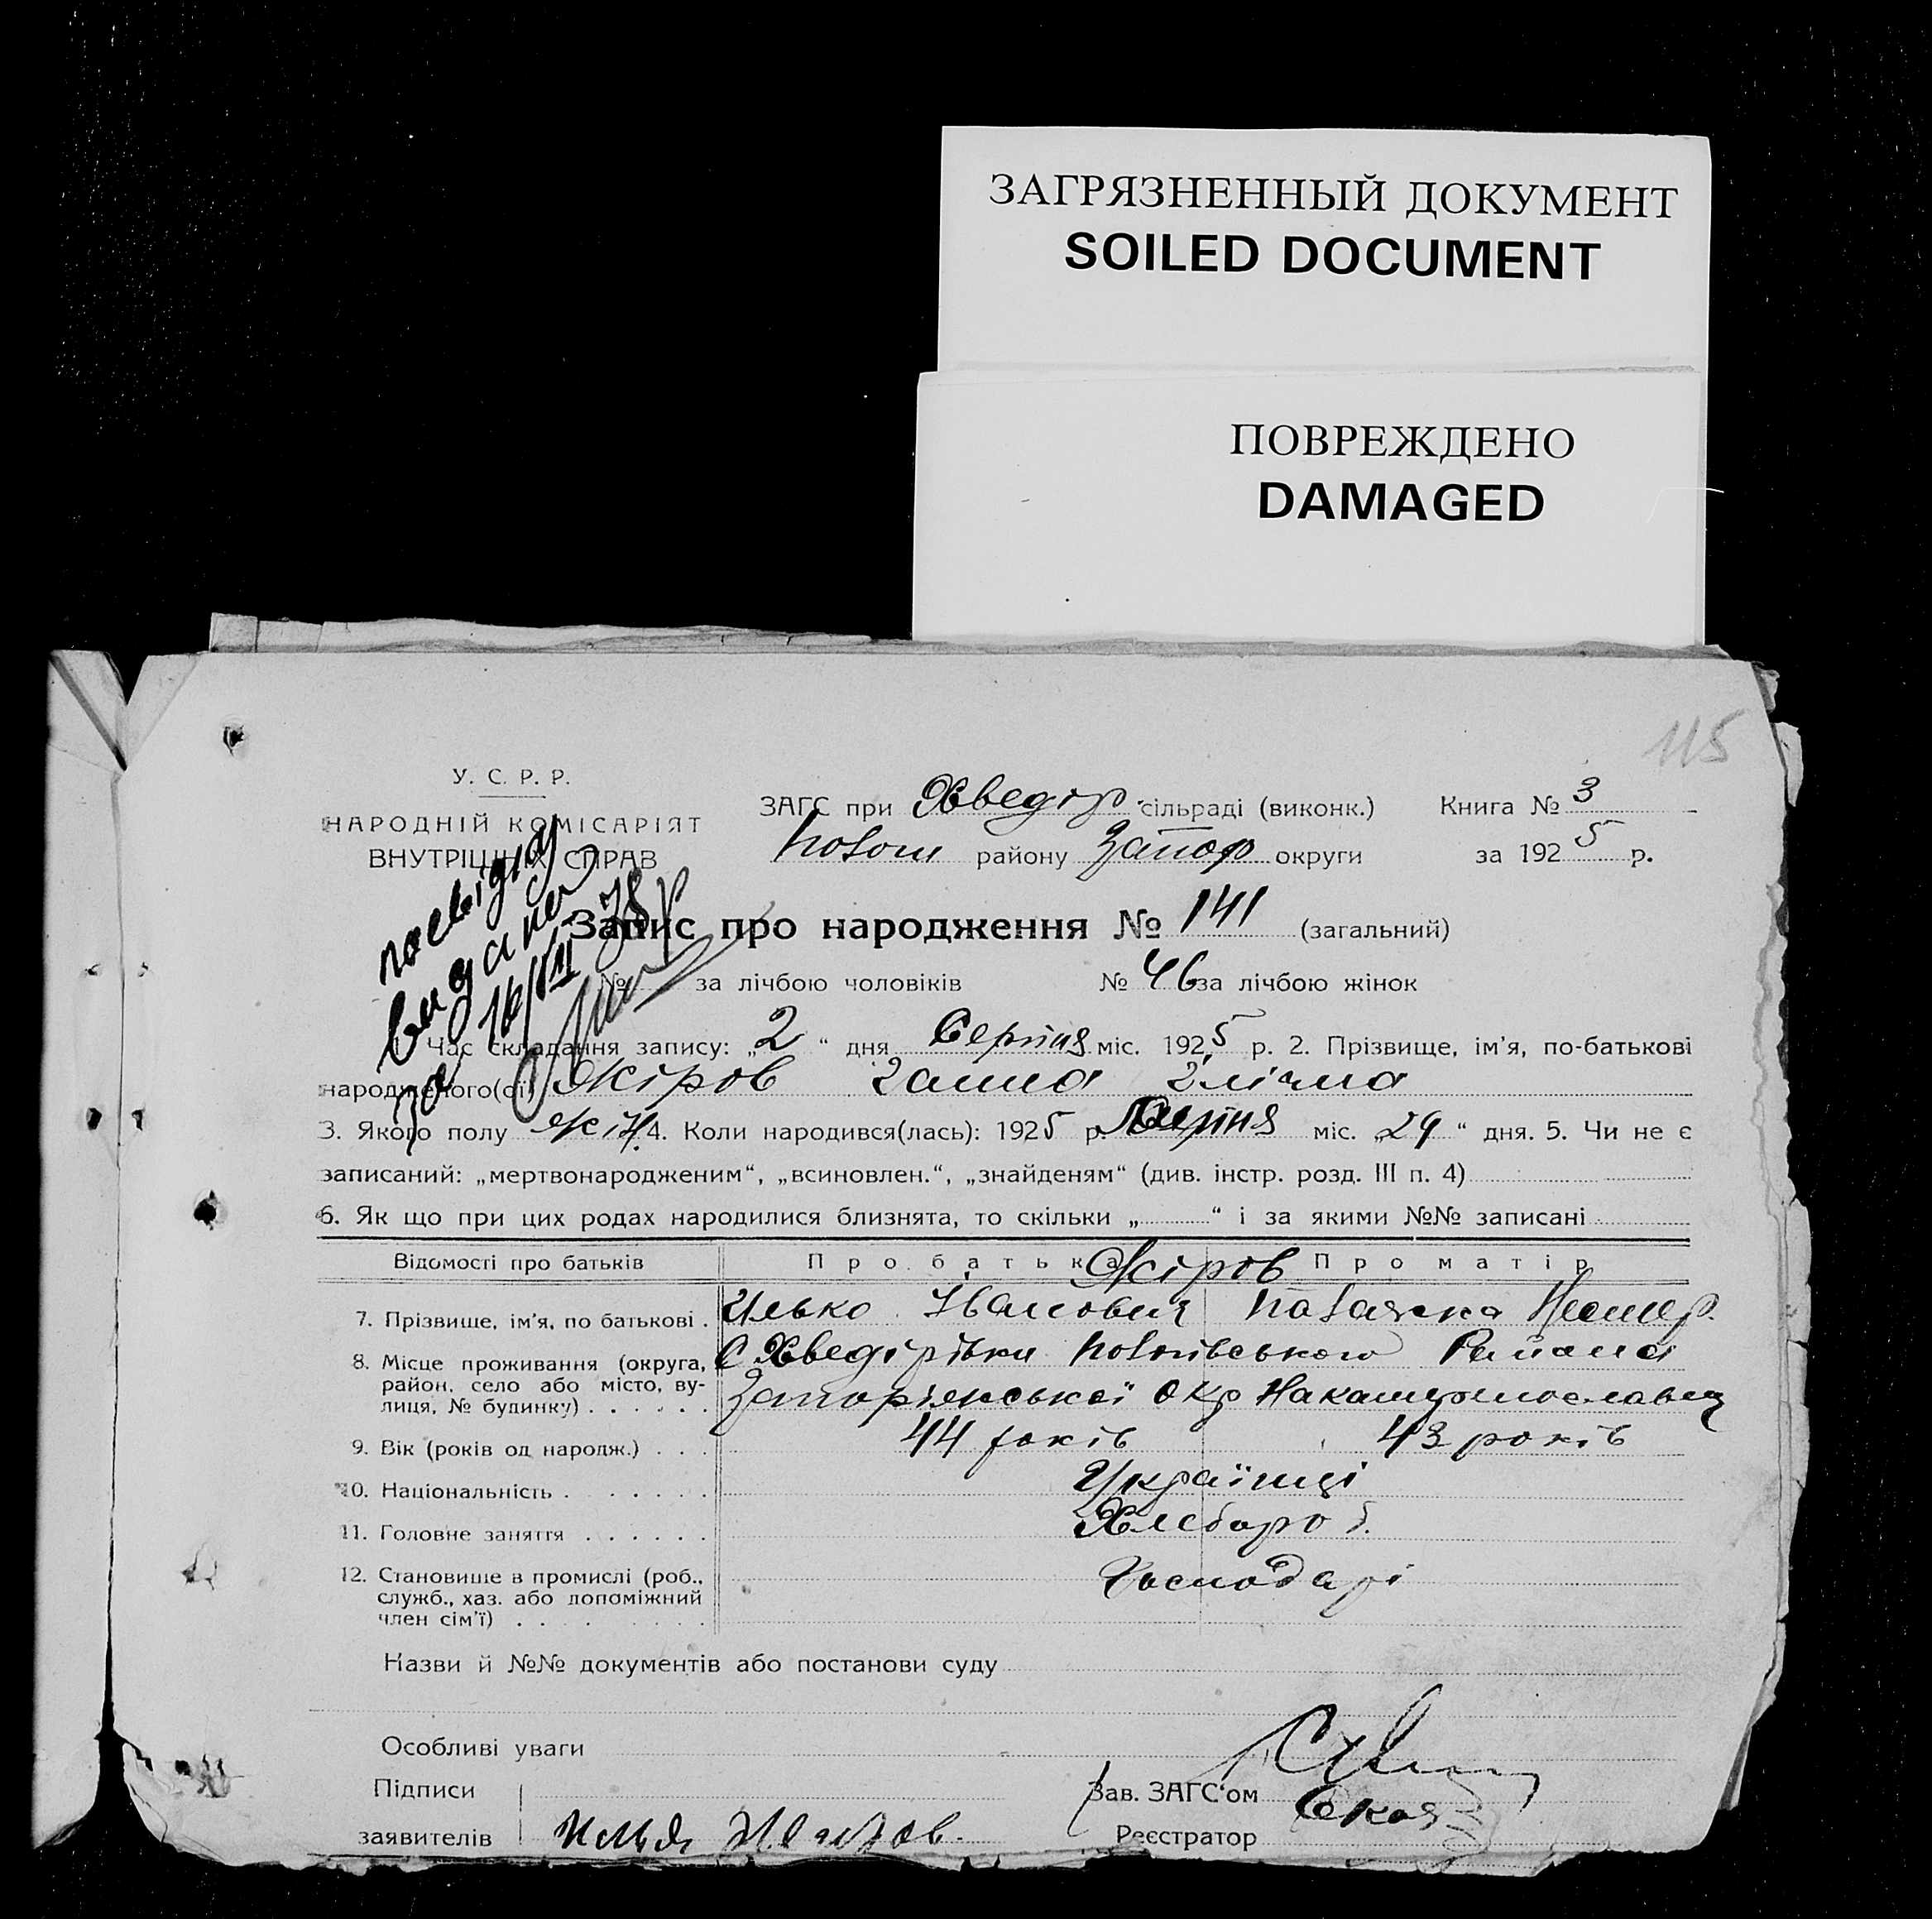 ЗАГРЯЗНЕННЫЙ ДОКУМЕНТ
SOILED DOCUMENT
ПОВРЕЖДЕНО
DAMAGED
115
У. С. Р. Р.
НАРОДНІЙ КОМІСАРІЯТ
ВНУТРІШНІХ СПРАВ
ЗАГС при Хведір. сільраді (виконк.) Книга № 3
району Запор округи за 1925 р.
Запис про народження № 141 (загальний)
№ за лічбою чоловіків № 46 за лічбою жінок
видане
16/VII
1. Час складання запису: „2“ дня Серпня міс. 1925 р. 2. Прізвище, ім'я, по-батькові
народженого(ої) Жіров Ганна Іллічна
3. Якого полу жін 4. Коли народився(лась): 1925 р. міс. „29“ дня. 5. Чи не є
записаний: „мертвонародженим“, „всиновлен.“, „знайденям“ (див. інстр. розд. III п. 4)
6. Як що при цих родах народилися близнята, то скільки „ “ і за якими №№ записані
Відомості про батьків Про батька Про матір
Жіров
7. Прізвище, ім'я, по батькові . Ілько Іванович
8. Місце проживання (округа, С Хведірівки Района
район, село або місто, ву- Запоріжської Окр
лиця, № будинку) . . . . . .
9. Вік (років од народж.) . . . 44 років 43 років
10. Національність . . . . . . Українці
11. Головне заняття . . . . . . Хлебороб.
12. Становище в промислі (роб., Господарі
служб., хаз. або допоміжний
член сім'ї) . . . . . .
Назви й №№ документів або постанови суду
Особливі уваги
Підписи Зав. ЗАГС'ом
заявителів Илья Жиров. Реєстратор